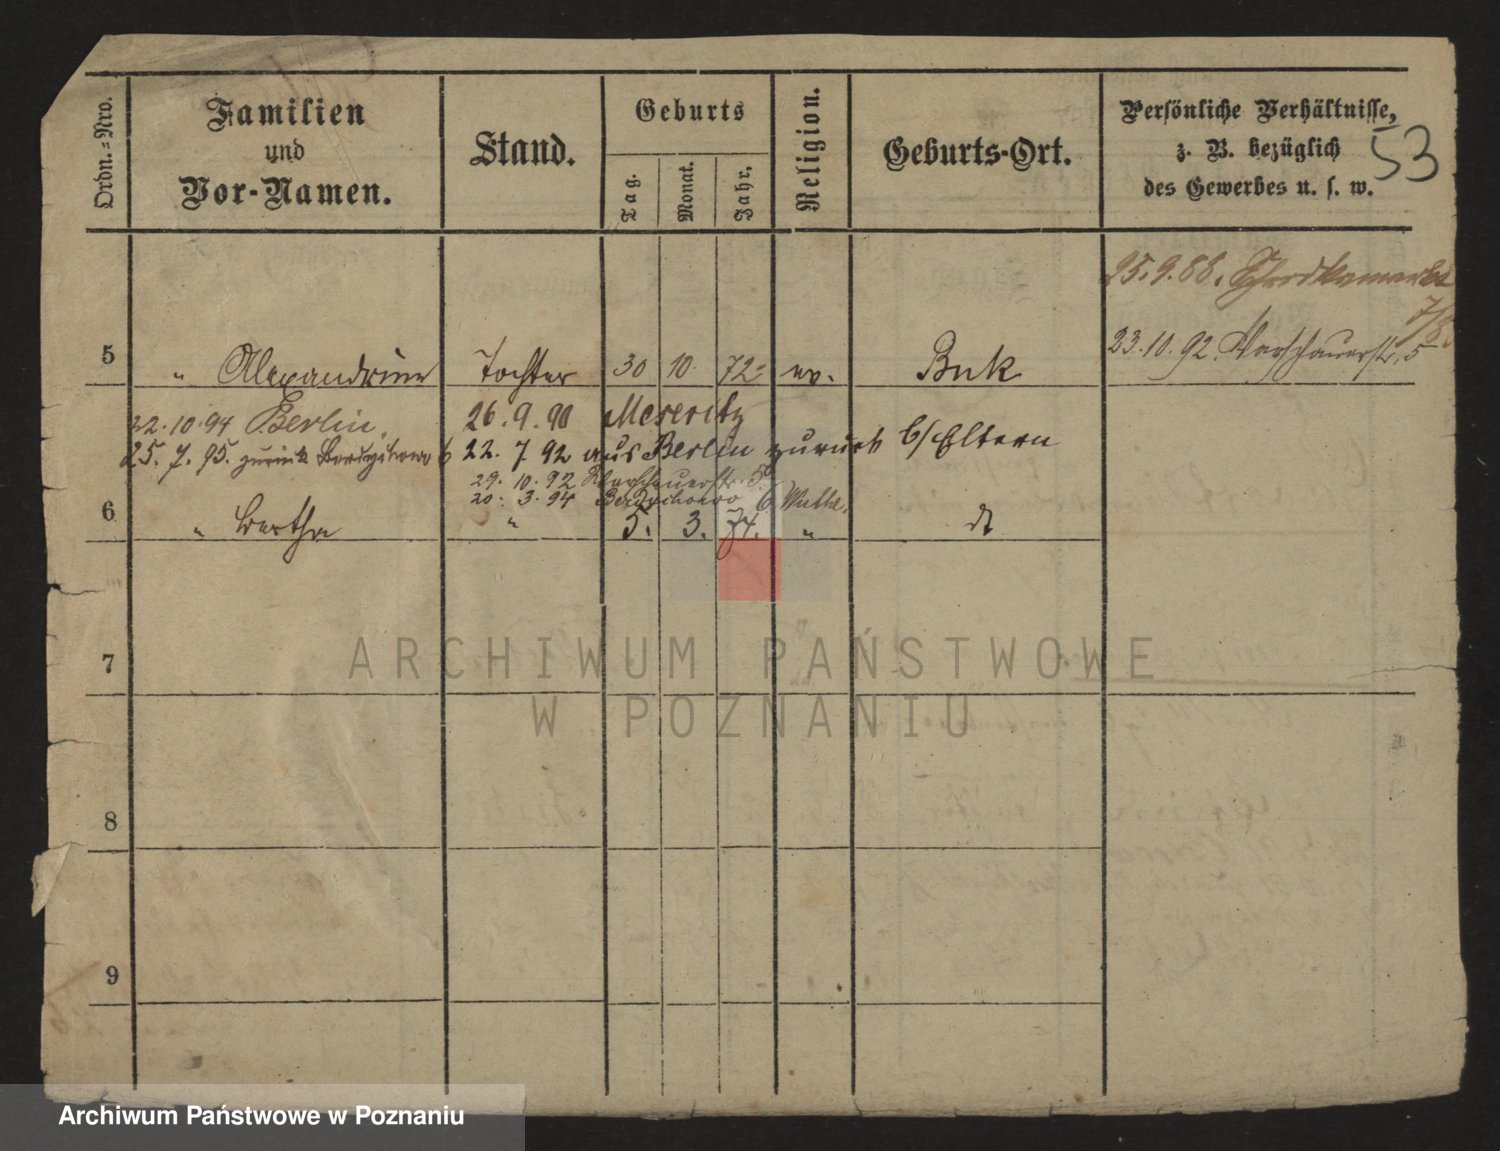 Ordn.=Nro.
Familien
und
Vor-Namen.
Stand.
Geburts
Tag.
Monat.
Jahr.
Religion.
Geburts-Ort.
Persönliche Verhältnisse,
z. B. bezüglich
des Gewerbes u. s. w.
53
25.9.88.
7/8.
23.10.92. Warschauerstr. 5
5 " Alexandrine Tochter 30 10. 72 ev. Buk
22.10.94 Berlin. 26.9.90 Meseritz
25.7.95. zurück 6 22.7.92 aus Berlin zurück b/Eltern
29.10.92 Warschauerstr. 5.
20.3.94 6
6 " Bertha " 5. 3. 74. " dt
7
8
9
ARCHIWUM PAŃSTWOWE
W POZNANIU
Archiwum Państwowe w Poznaniu